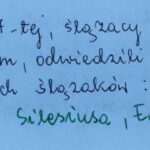 -tej, ślązacy
m, odwiedzili
ch ślązaków :
Silesiusa, E